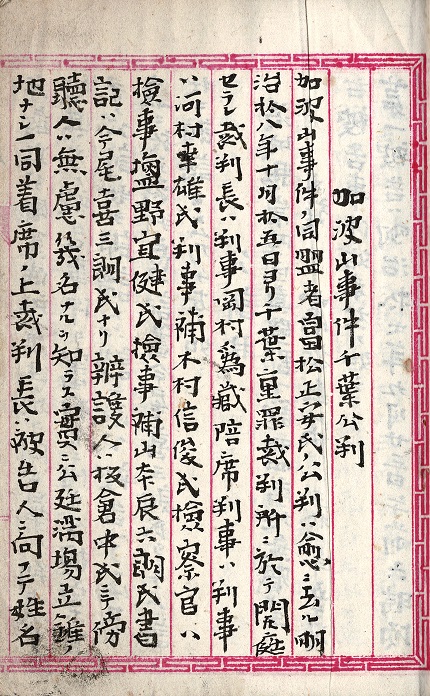 加波山事件千葉公判
加波山事件ノ同盟者富松正安氏ノ公判ハ愈〻去ル明
治拾八年十月拾五日ヨリ千葉重罪裁判所ニ於テ開庭
セラレ裁判長ハ判事岡村為蔵陪席判事ハ判事
ハ河村幸雄氏判事補木村信俊氏検察官ハ
検事塩野宜健氏検事補山本辰六郎氏書
記ハ今尾喜三郎氏ナリ辨護人ハ板倉中氏ニテ傍
聴人ハ無慮幾名ナルヲ知ラス実ニ公廷満場立錐ノ
地ナシ一同着席ノ上裁判長ハ被告人ニ向フテ姓名